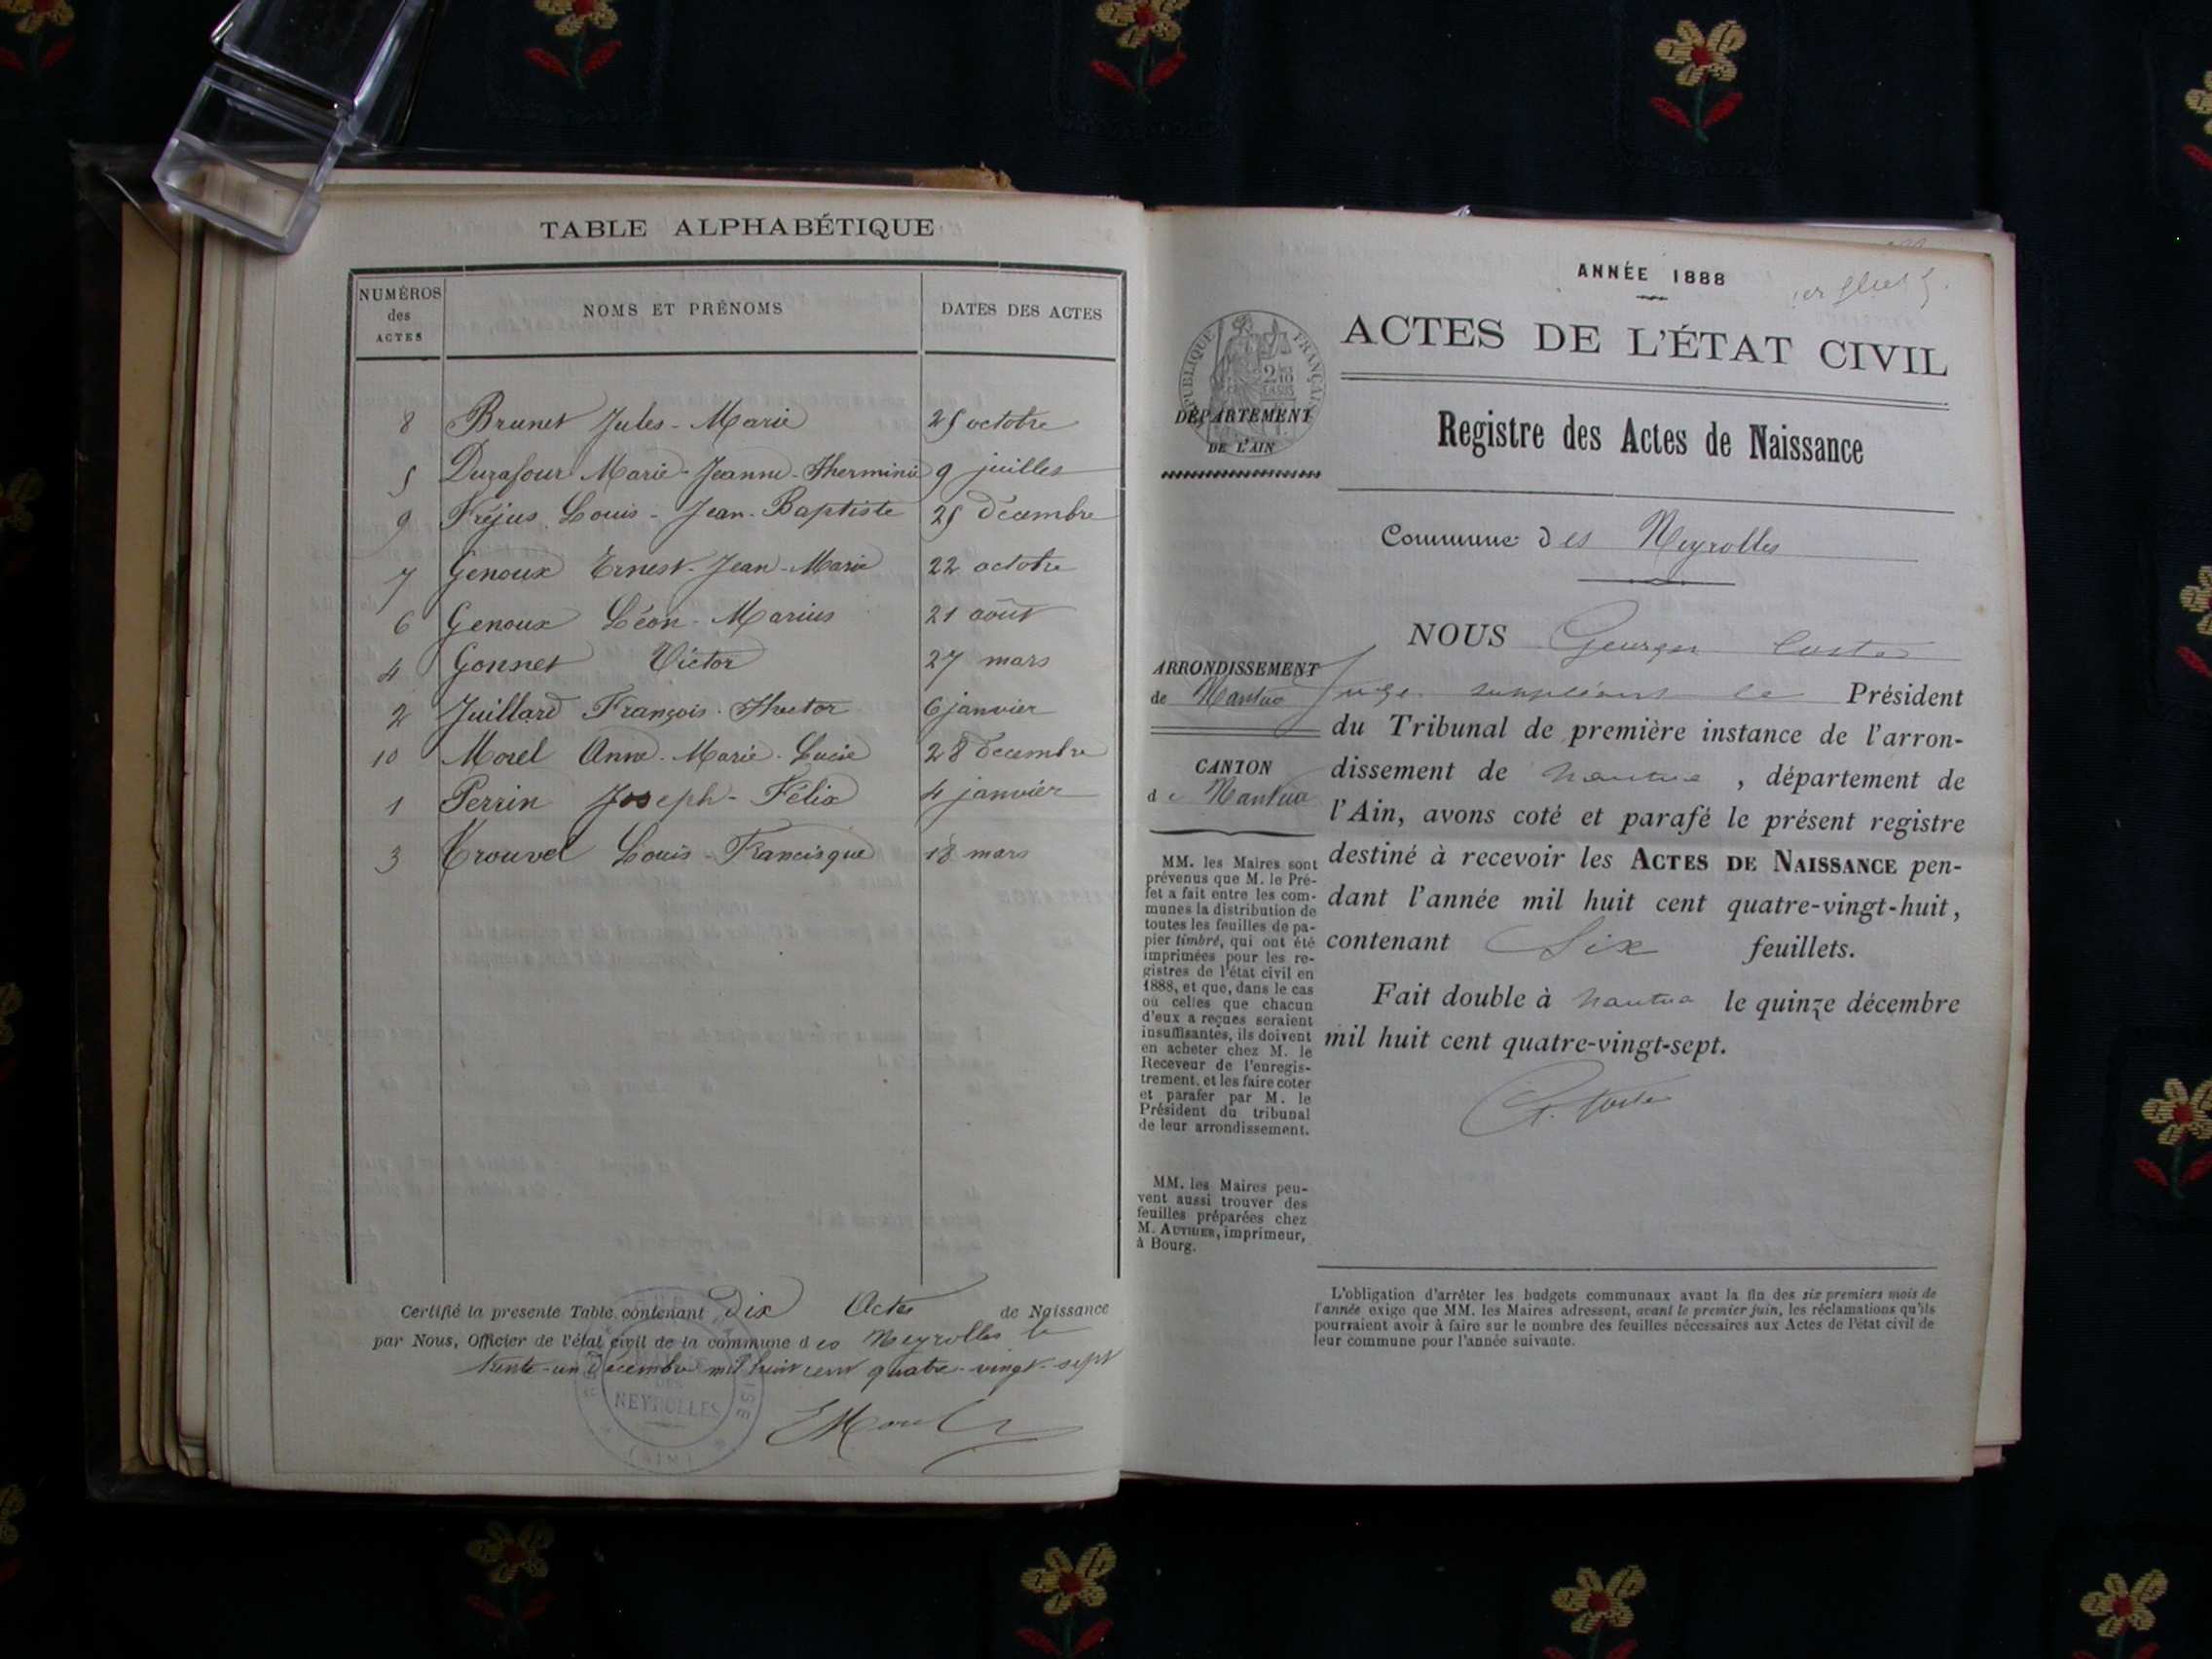 TABLE ALPHABÉTIQUE
NUMÉROS des ACTES
NOMS ET PRÉNOMS
DATES DES ACTES
8 Brunet Jules-Marie 25 octobre
5 Durafour Marie-Jeanne-Herminie 9 juillet
9 Fréjus Louis-Jean-Baptiste 25 décembre
7 Genoux Ernest-Jean-Marie 22 octobre
6 Genoux Léon-Marius 21 août
4 Gonnet Victor 27 mars
2 Juillard François-Hector 6 janvier
10 Morel Anne-Marie-Lucie 28 décembre
1 Perrin Joseph-Félix 4 janvier
3 Trouvel Louis-Francisque 18 mars
Certifié la présente Table contenant Dix Actes de Naissance
par Nous, Officier de l'état civil de la commune des Neyrolles le
trente-un Décembre mil huit cent quatre-vingt-sept
NEYROLLES
(AIN)
EMorel
ANNÉE 1888
1er
ACTES DE L'ÉTAT CIVIL
RÉPUBLIQUE FRANÇAISE
DÉPARTEMENT
DE L'AIN
Registre des Actes de Naissance
Commune des Neyrolles
ARRONDISSEMENT
de Nantua
CANTON
de Nantua
MM. les Maires sont
prévenus que M. le Pré-
fet a fait entre les com-
munes la distribution de
toutes les feuilles de pa-
pier timbré, qui ont été
imprimées pour les re-
gistres de l'état civil en
1888, et que, dans le cas
où celles que chacun
d'eux a reçues seraient
insuffisantes, ils doivent
en acheter chez M. le
Receveur de l'enregis-
trement, et les faire coter
et parafer par M. le
Président du tribunal
de leur arrondissement.
MM. les Maires peu-
vent aussi trouver des
feuilles préparées chez
M. AUTHIER, imprimeur,
à Bourg.
NOUS Georges
Juge suppléant le Président
du Tribunal de première instance de l'arron-
dissement de Nantua, département de
l'Ain, avons coté et parafé le présent registre
destiné à recevoir les ACTES DE NAISSANCE pen-
dant l'année mil huit cent quatre-vingt-huit,
contenant Six feuillets.
Fait double à Nantua le quinze décembre
mil huit cent quatre-vingt-sept.
L'obligation d'arrêter les budgets communaux avant la fin des six premiers mois de
l'année exige que MM. les Maires adressent, avant le premier juin, les réclamations qu'ils
pourraient avoir à faire sur le nombre des feuilles nécessaires aux Actes de l'état civil de
leur commune pour l'année suivante.